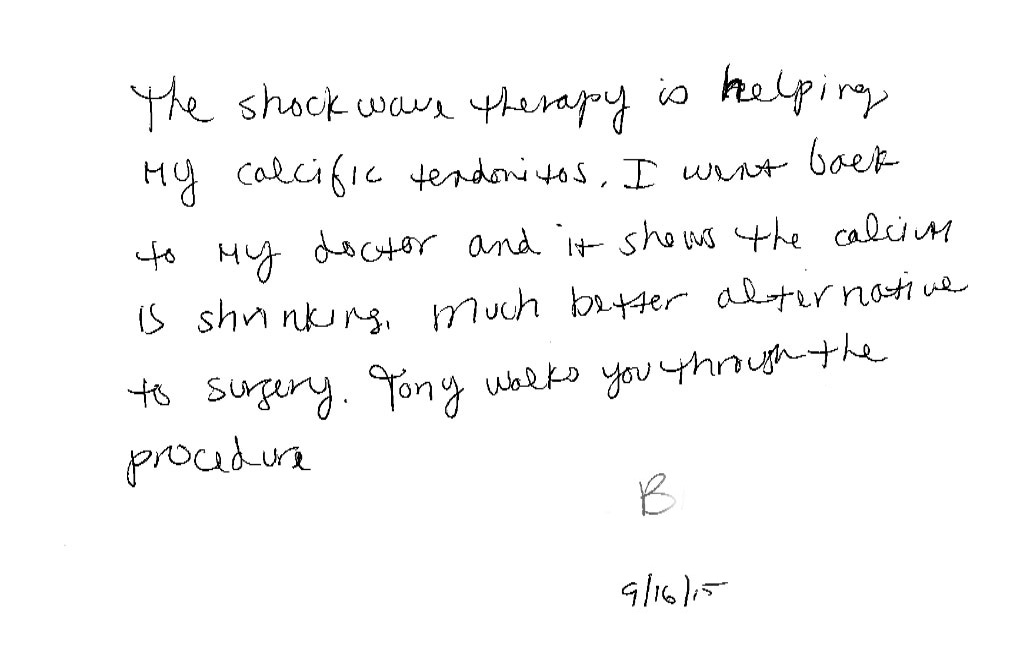 The shockwave therapy is helping
My calcific tendonitos. I went back
to My doctor and it shows the calcium
is shrinking. Much better alternative
to surgery. Tony walks you through the
procedure
B
9/16/15